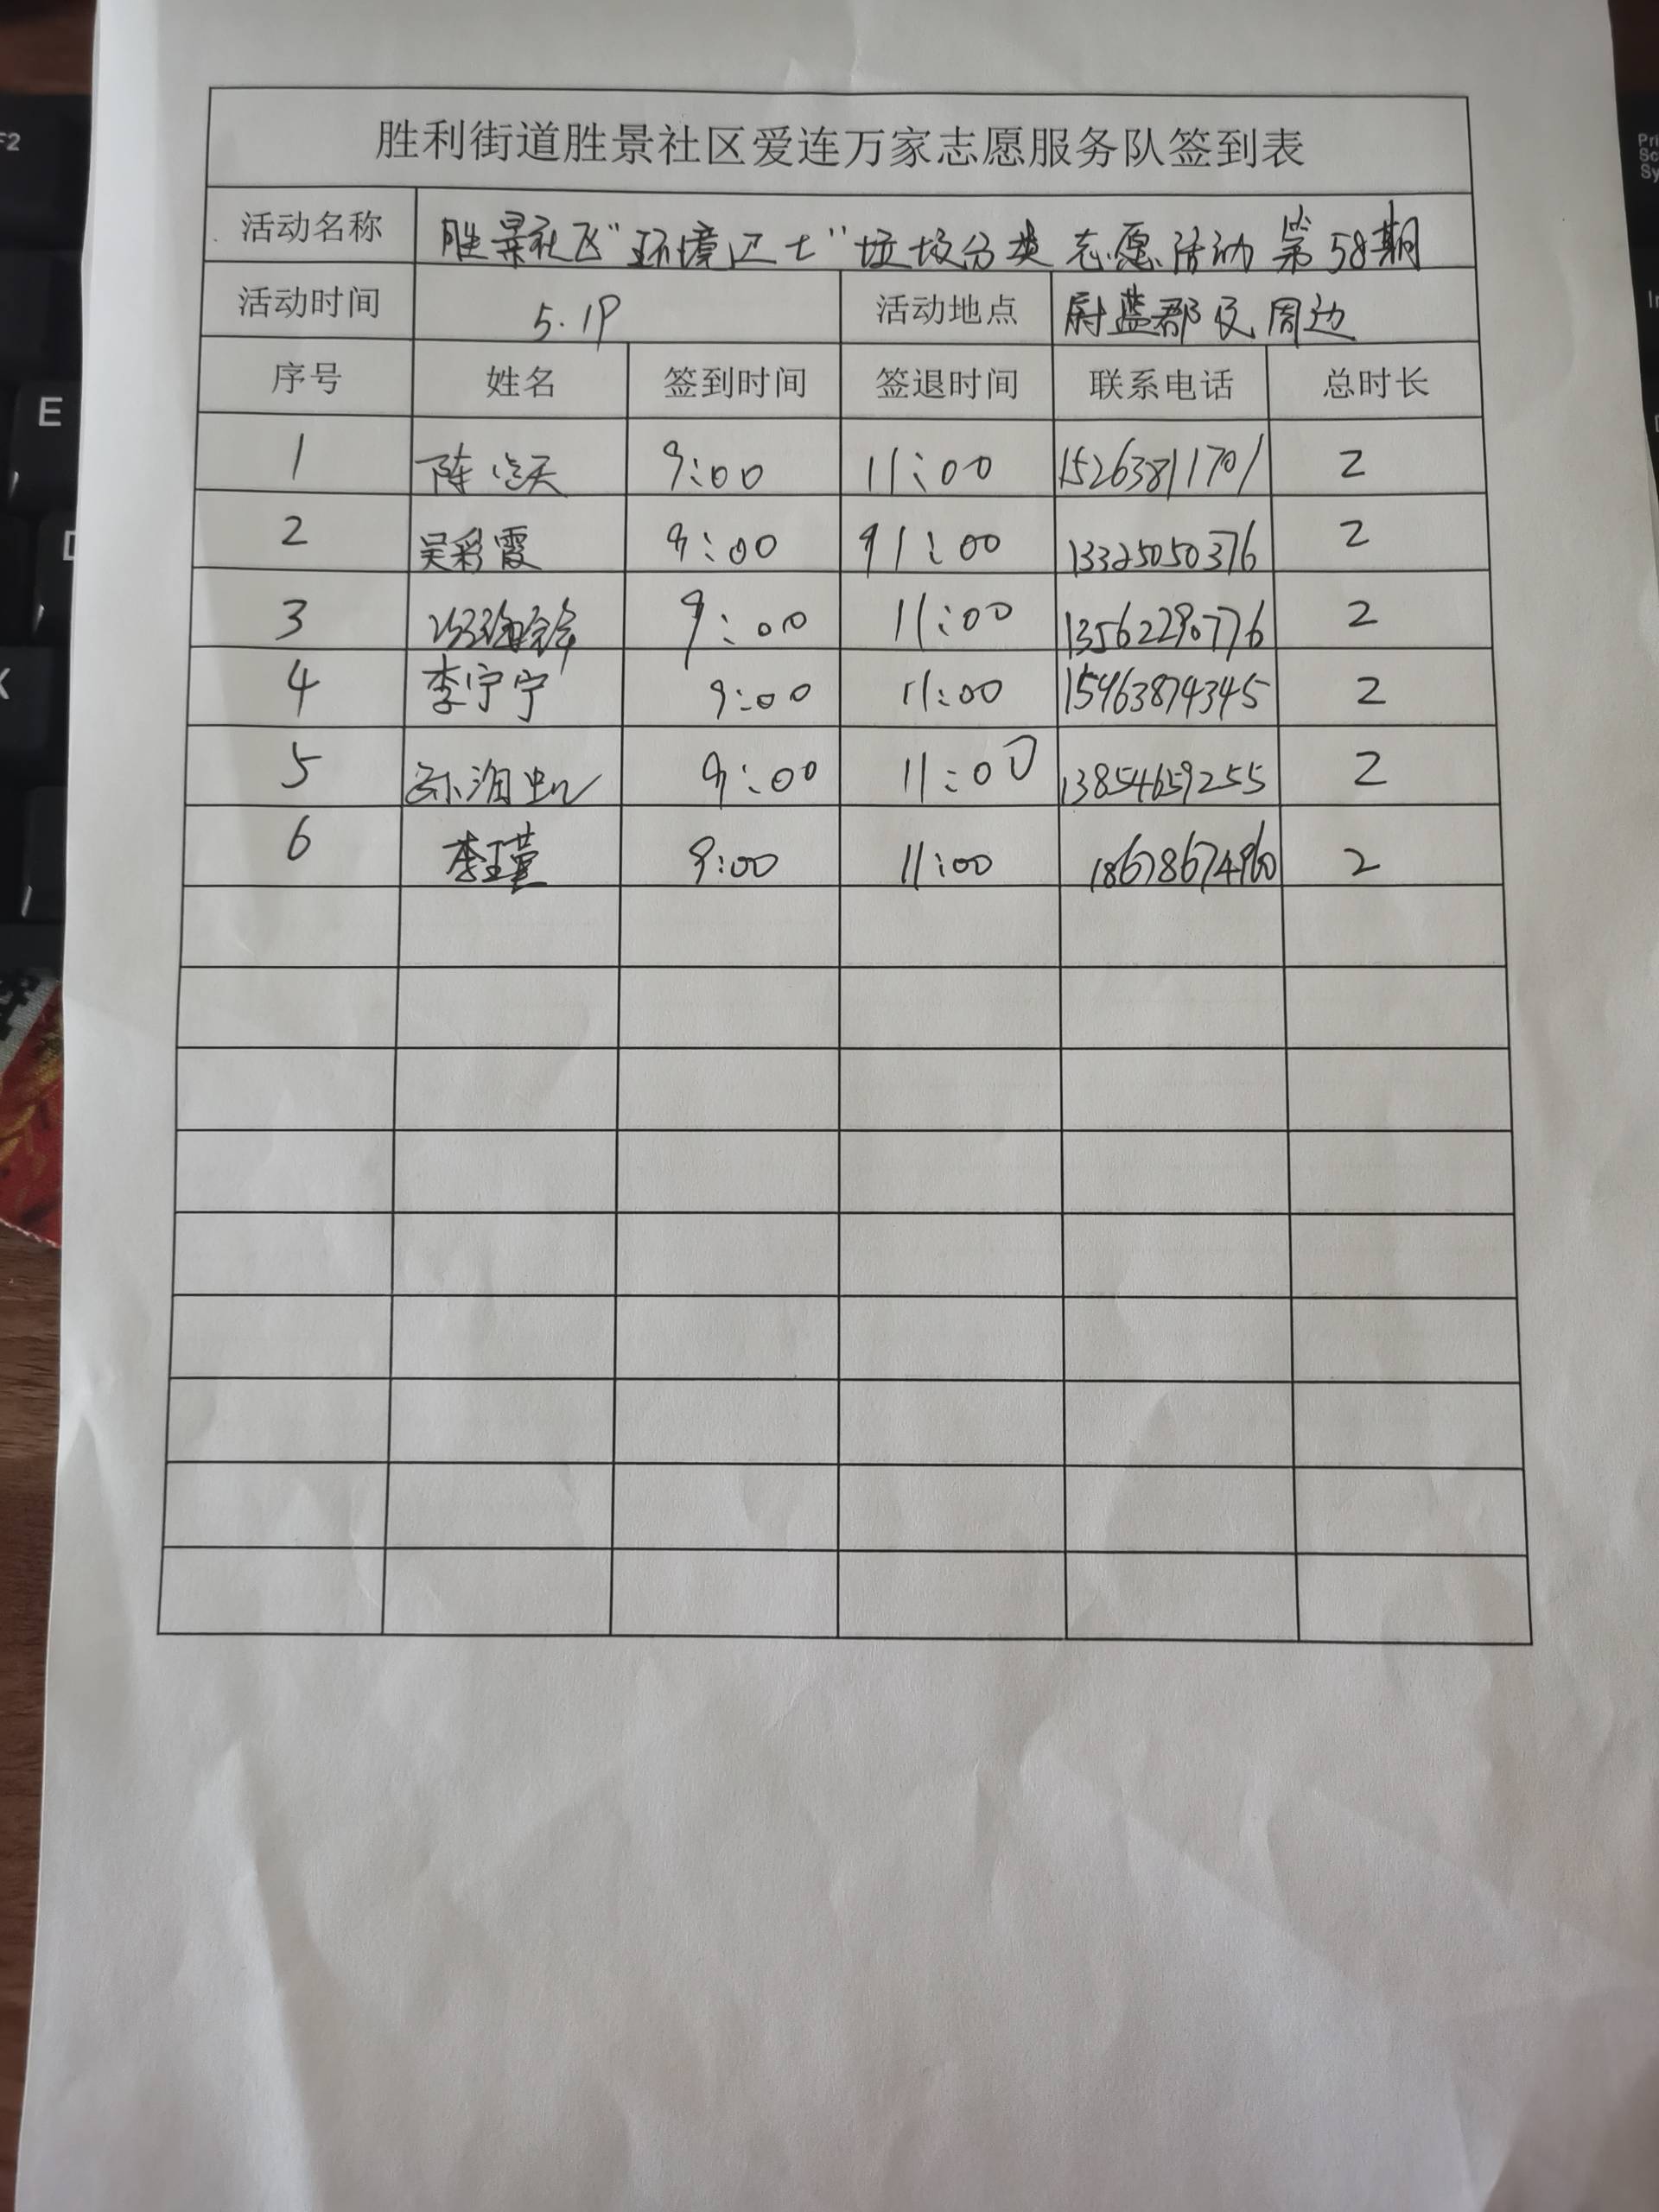 胜利街道胜景社区爱连万家志愿服务队签到表
活动名称 胜景社区"环境卫士"垃圾分类志愿活动 第58期
活动时间 5.19 活动地点 蔚蓝郡及周边
序号 姓名 签到时间 签退时间 联系电话 总时长
1 陈 天 9:00 11:00 15263811701 2
2 吴彩霞 9:00 11:00 13325050376 2
3 9:00 11:00 13562290776 2
4 李宁宁 9:00 11:00 15963874345 2
5 孙海 9:00 11:00 13854659255 2
6 李瑾 9:00 11:00 18678674960 2
F2
E